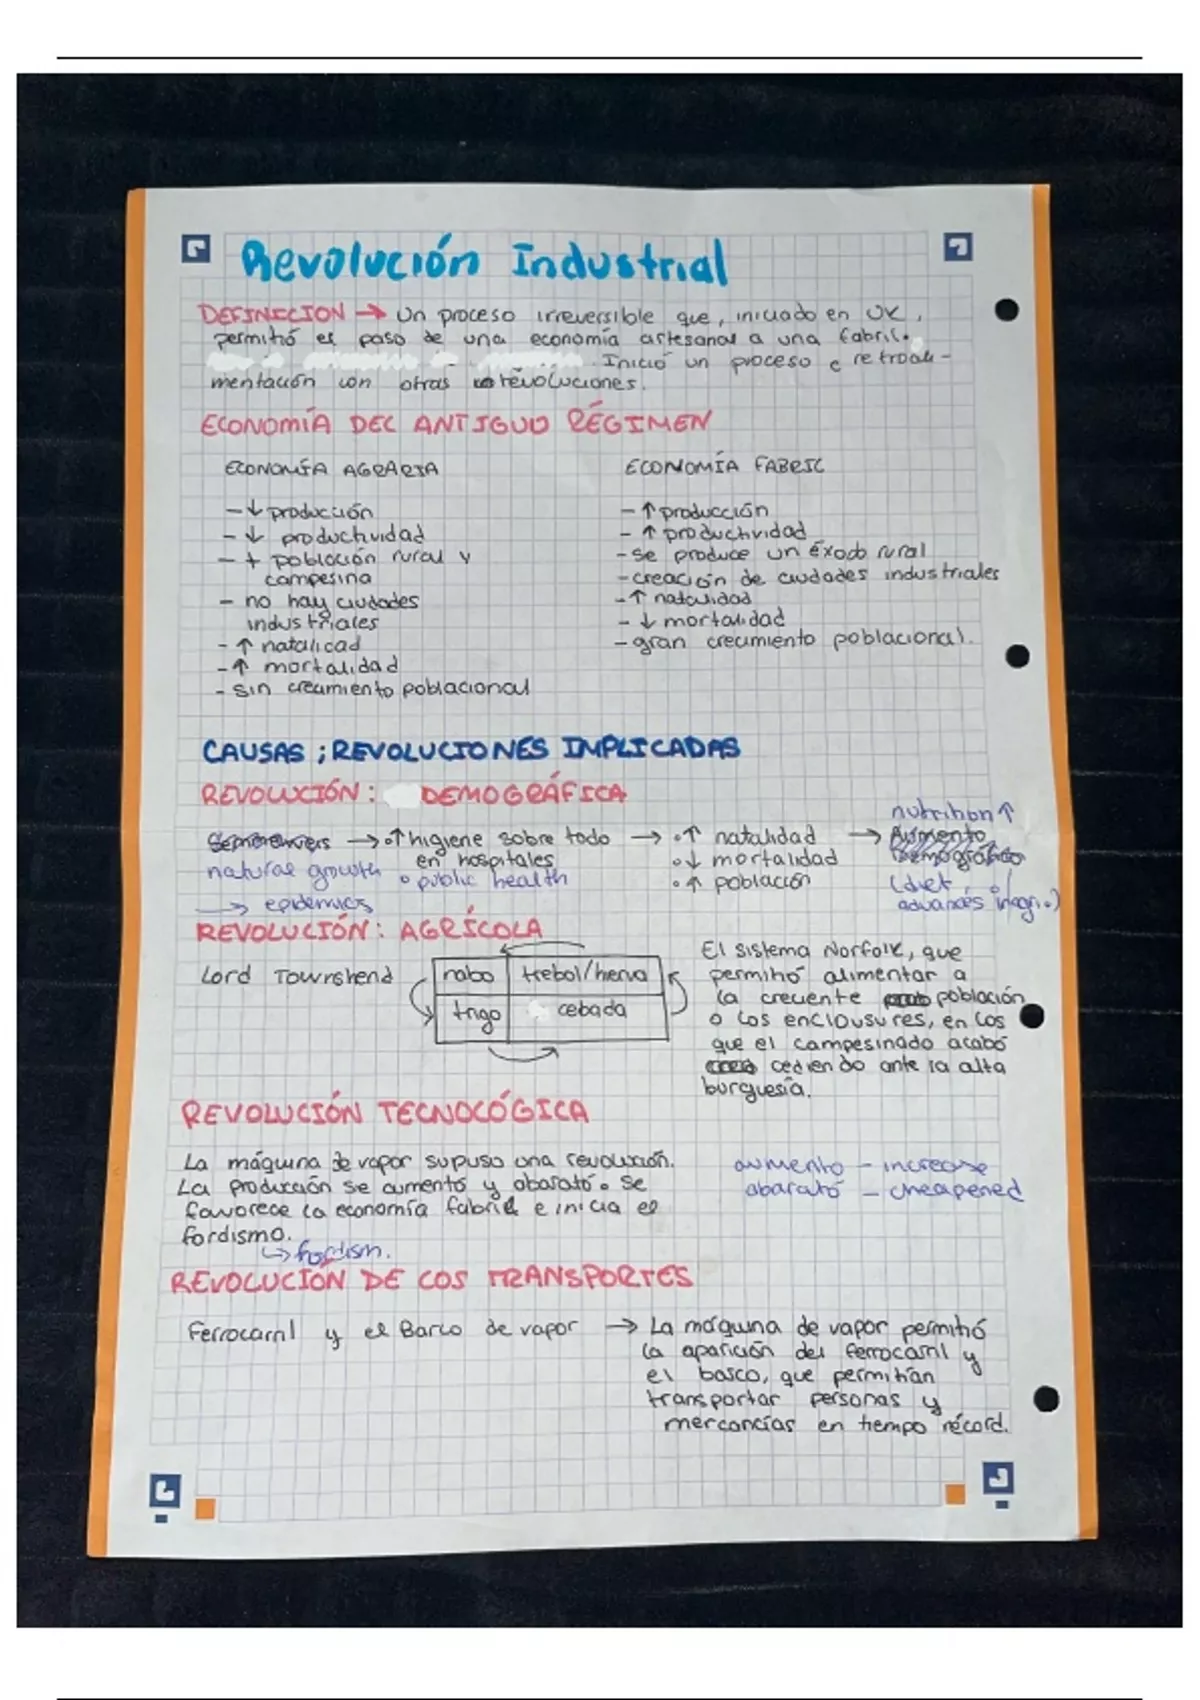 Revolución Industrial
DEFINICION → Un proceso irreversible que, iniciado en UK,
permitió el paso de una economía artesanal a una fabril.
Inició un proceso e retroali-
mentación con otras revoluciones.
ECONOMÍA DEL ANTIGUO RÉGIMEN
ECONOMÍA AGRARIA
- ↓ producción
- ↓ productividad
- + población rural y
campesina
- no hay ciudades
industriales
- ↑ natalicad
- ↑ mortalidad
- sin crecimiento poblacional
ECONOMÍA FABRIL
- ↑ producción
- ↑ productividad
- se produce un éxodo rural
- creación de ciudades industriales
- ↑ natalidad
- ↓ mortalidad
- gran crecimiento poblacional.
CAUSAS ; REVOLUCIONES IMPLICADAS
REVOLUCIÓN: DEMOGRÁFICA
→ ↑ higiene sobre todo
en hospitales
o public health
natural growth
→ epidemics
→ ↑ natalidad
↓ mortalidad
↑ población
nutrition ↑
→ Aumento
Demográfico
(diet,
advances in agri.)
REVOLUCIÓN: AGRÍCOLA
Lord Townshend
nabo trebol/hierva
trigo cebada
El sistema Norfolk, que
permitió alimentar a
la creciente población
o los enclousures, en los
que el campesinado acabó
cediendo ante la alta
burguesía.
REVOLUCIÓN TECNOLÓGICA
La máquina de vapor supuso una revolución.
La producción se aumentó y abarató. Se
favorece la economía fabril e inicia el
fordismo.
↳ fordism.
aumento - increase
abarató - cheapened
REVOLUCIÓN DE LOS TRANSPORTES
Ferrocarril y el Barco de vapor → La máquina de vapor permitió
la aparición del ferrocarril y
el basco, que permitían
transportar personas y
mercancías en tiempo récord.